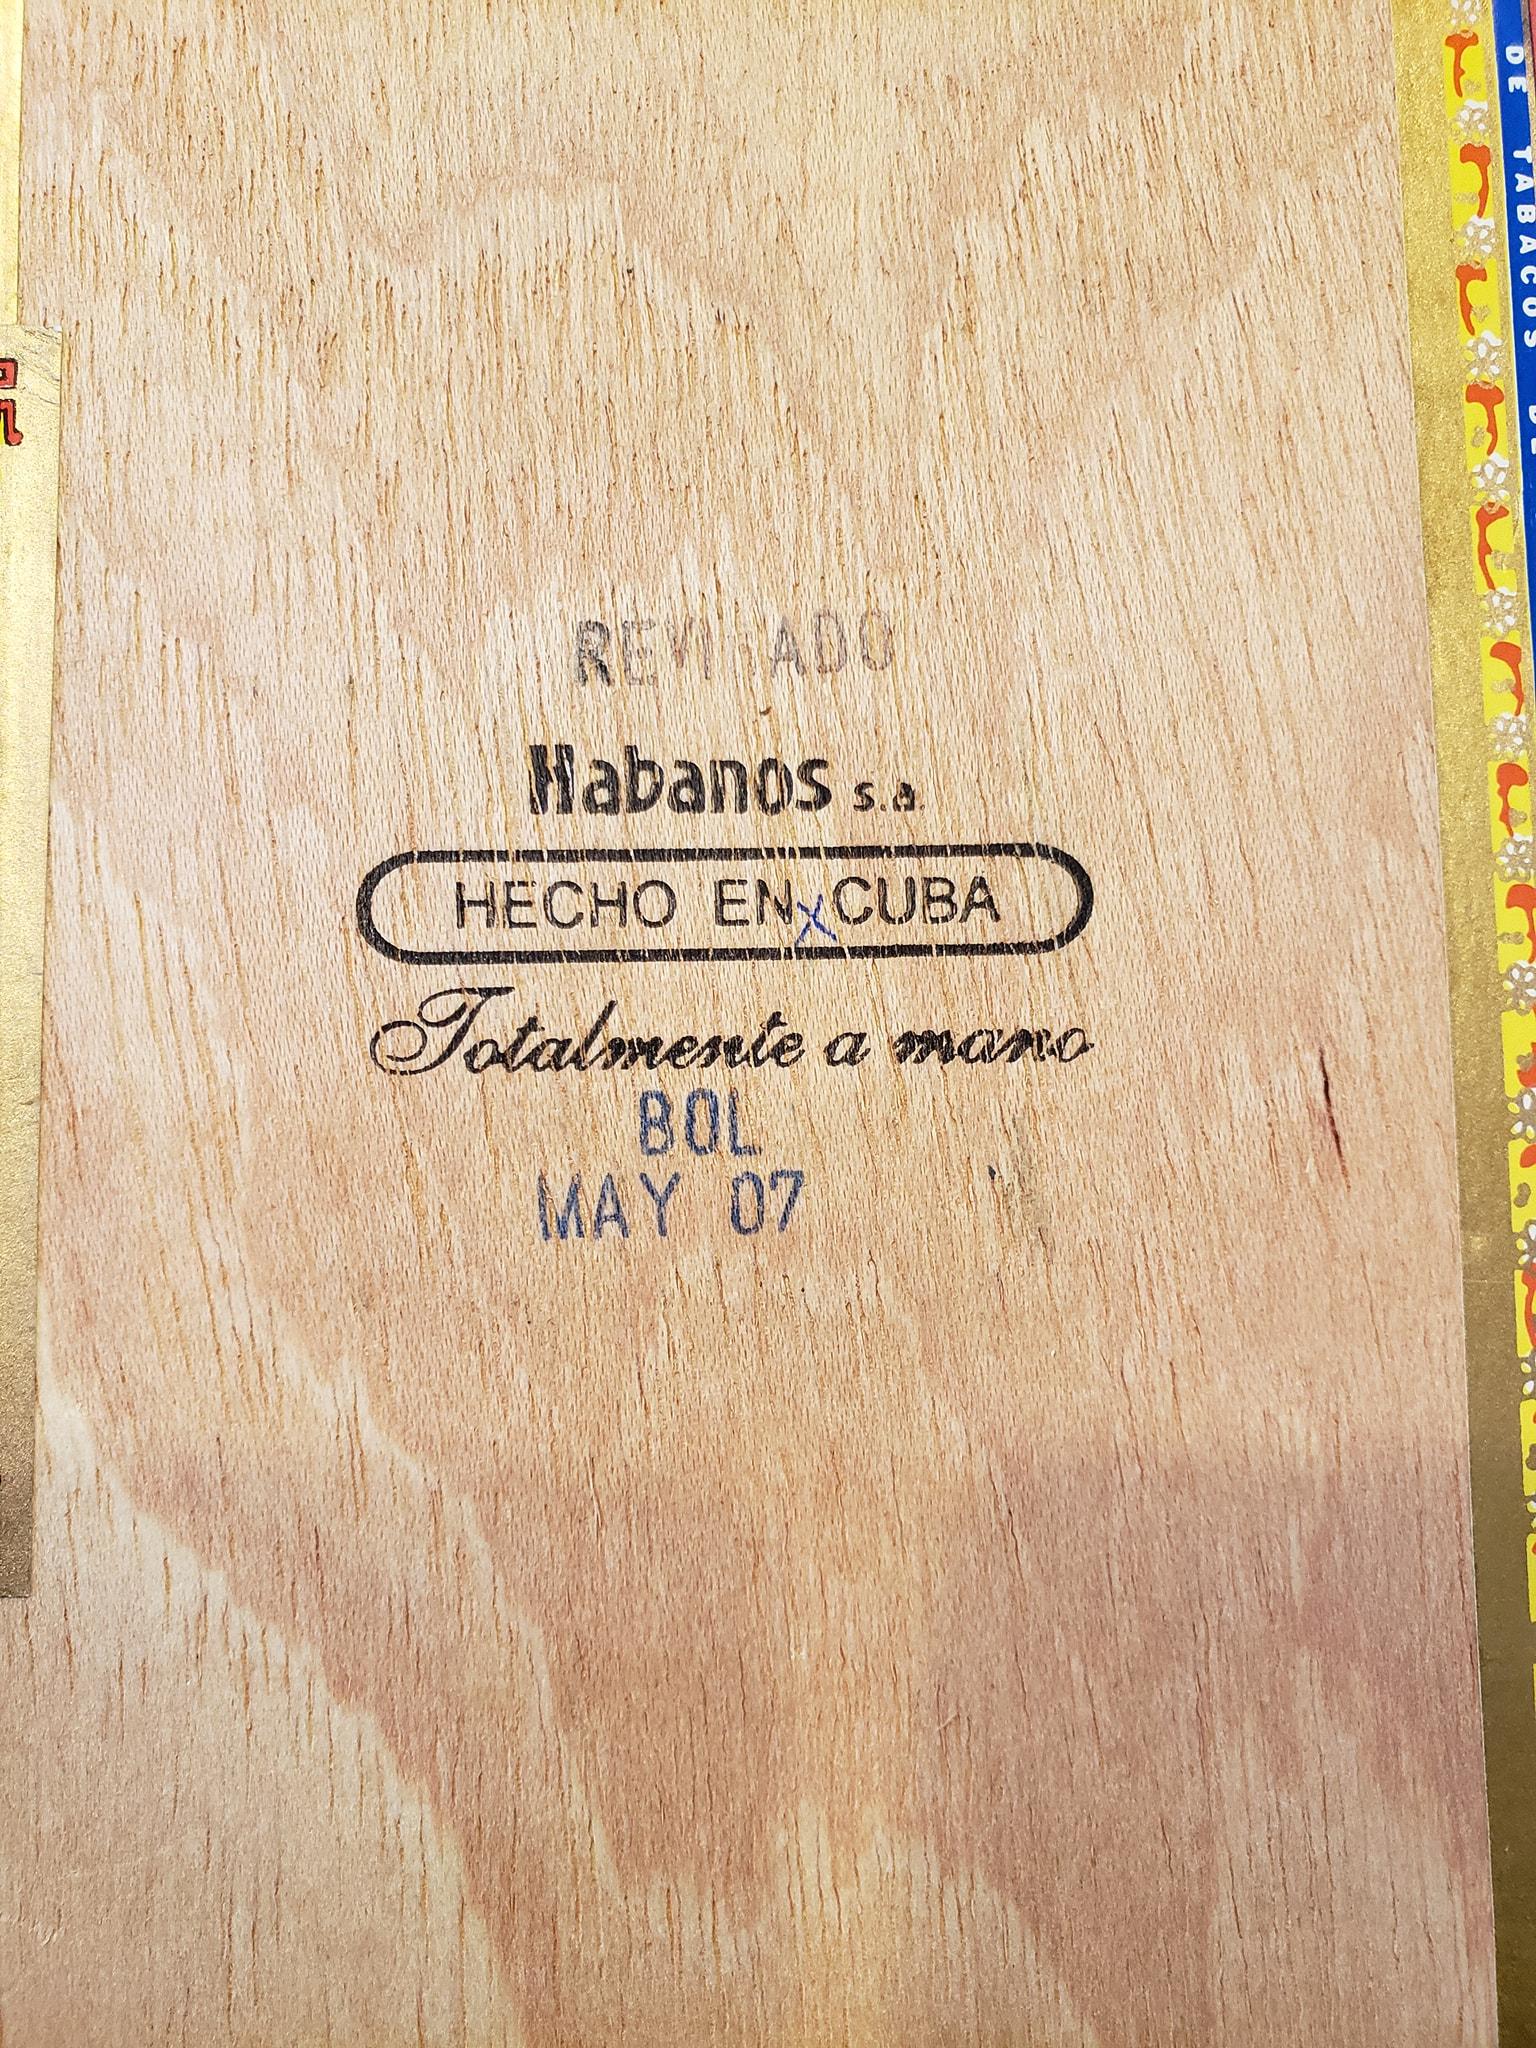 REVISADO
Habanos s.a.
HECHO EN CUBA
Totalmente a mano
BOL
MAY 07
DE TABACOS DE